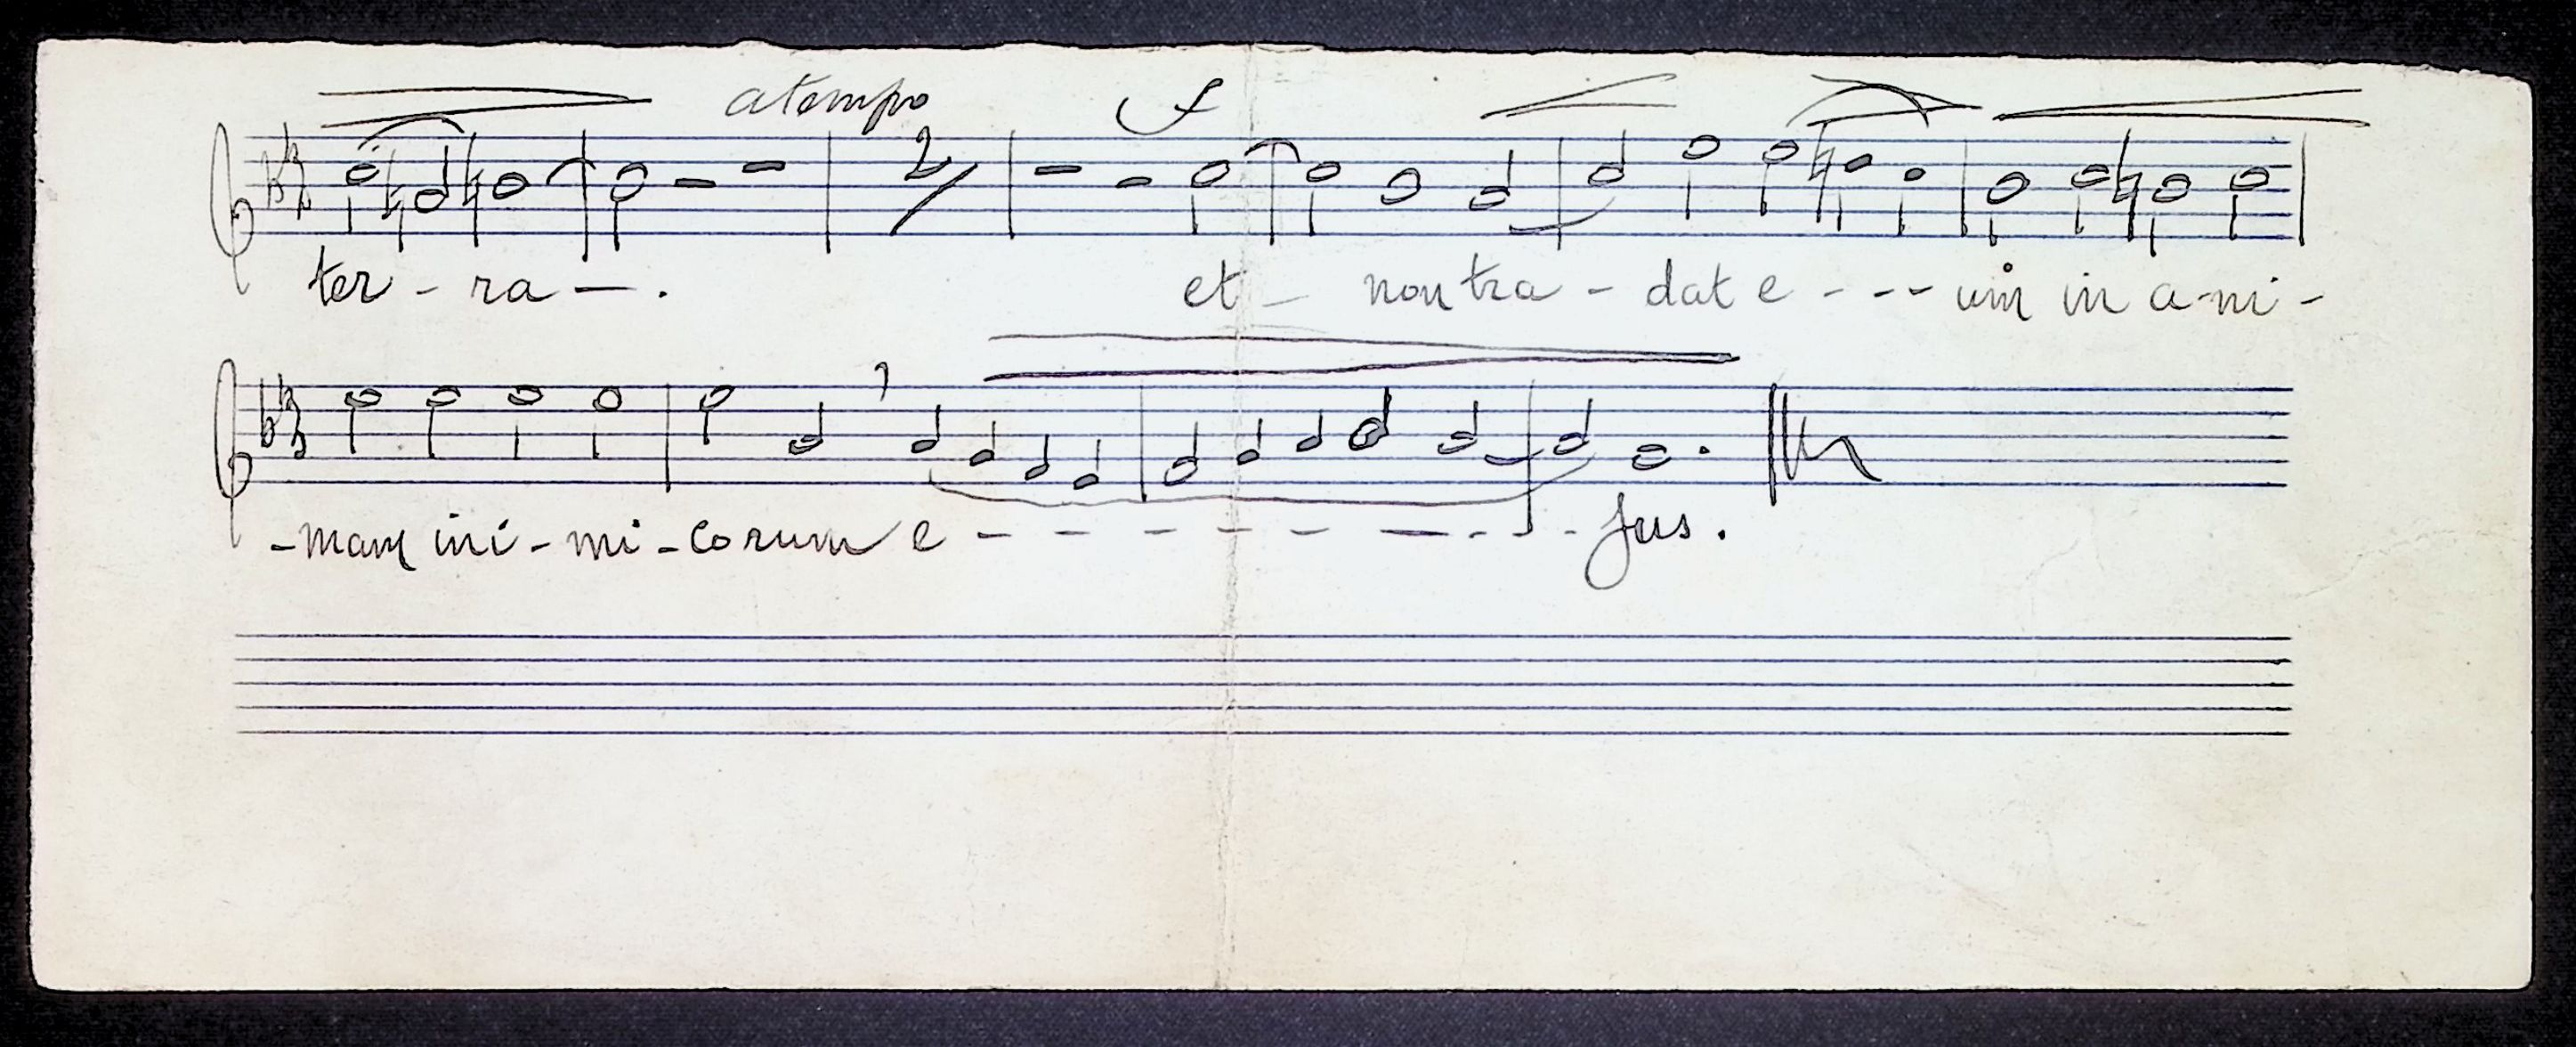 a tempo f
2
ter - ra - . et - non tra - dat e - - - um in a - ni -
- mam ini - mi - corum e - - - - - - - - - jus.